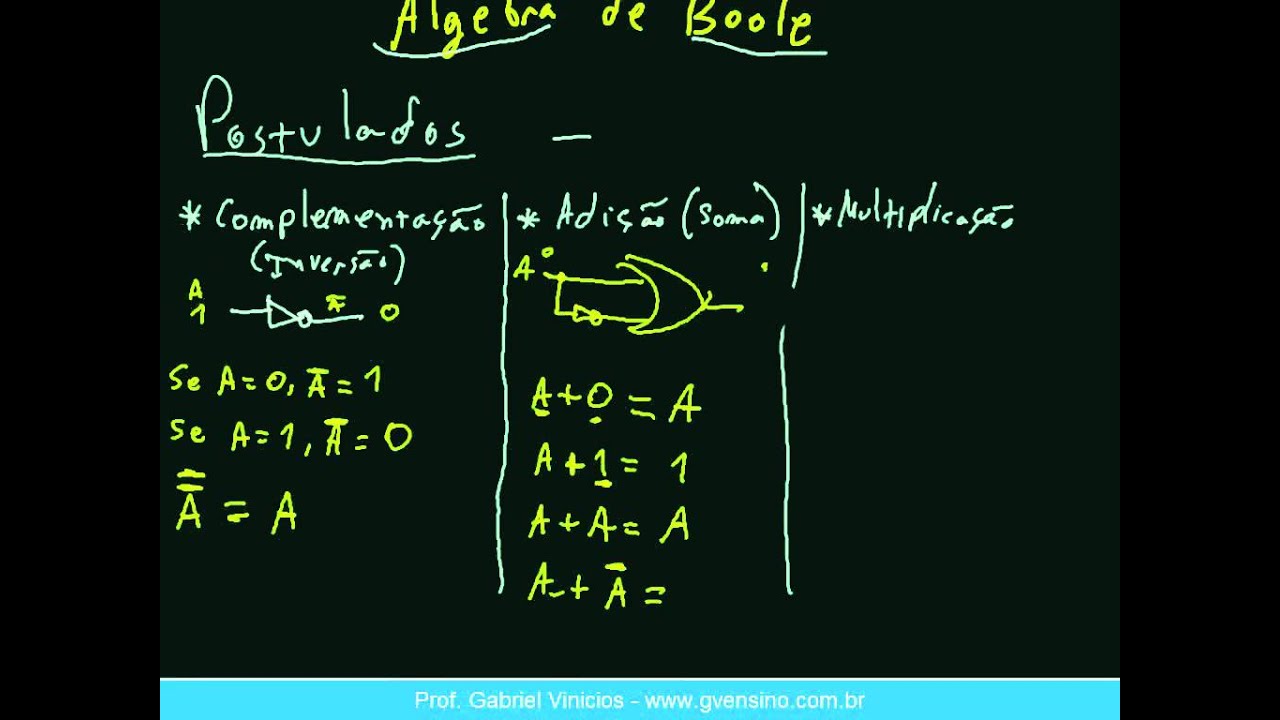 Algebra de Boole
Postulados —
* Complementação
(Inversão)
A
1
Ā
0
Se A=0, Ā=1
Se A=1, Ā=0
A̿ = A
* Adição (Soma)
A 0
A+0=A
A+1=1
A+A=A
A+Ā=
* Multiplicação
Prof. Gabriel Vinicios - www.gvensino.com.br